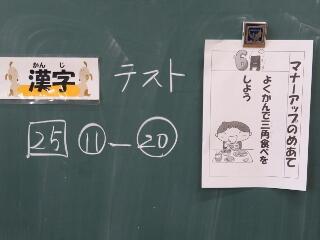 かんじ
漢字
テスト
25 ⑪ー⑳
6月
マナーアップのめあて
よくかんで三角食べを
しよう